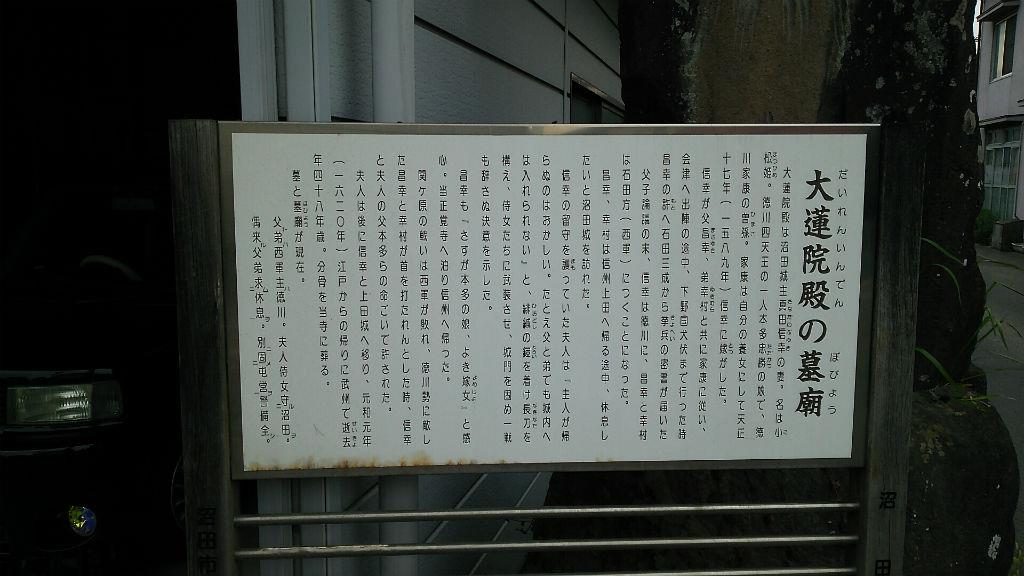 大蓮院殿の墓廟
だいれんいんでん ぼびょう
大蓮院殿は沼田城主真田信幸の妻。名は小
松姫。徳川四天王の一人本多忠勝の娘で、徳
川家康の曽孫。家康は自分の養女にして天正
十七年(一五八九年)信幸に嫁がした。
信幸が父昌幸、弟幸村と共に家康に従い、
会津へ出陣の途中、下野国犬伏まで行った時
昌幸の許へ石田三成から挙兵の密書が届いた
父子論議の末、信幸は徳川に、昌幸と幸村
は石田方(西軍)につくことになった。
昌幸、幸村は信州上田へ帰る途中、休息し
たいと沼田城を訪れた。
信幸の留守を護っていた夫人は『主人が帰
らぬのはおかしい。たとえ父と弟でも城内へ
は入れられない』と、緋縅の鎧を着け長刀を
構え、侍女たちに武装させ、城門を固め一戦
も辞さぬ決意を示した。
昌幸も『さすが本多の娘、よき嫁女』と感
心。当正覚寺へ泊り信州へ帰った。
関ケ原の戦いは西軍が敗れ、徳川勢に敵し
た昌幸と幸村が首を打たれんとした時、信幸
と夫人の父本多らの命ごいで許された。
夫人は後に信幸と上田城へ移り、元和元年
(一六二〇年)江戸からの帰りに武州で逝去
年四十八年歳。分骨を当寺に葬る。
墓と墓廟が現在。
父弟西軍主徳川。夫人侍女守沼田。
偶来父弟求休息。別固屯営警備全。
沼田市
沼田